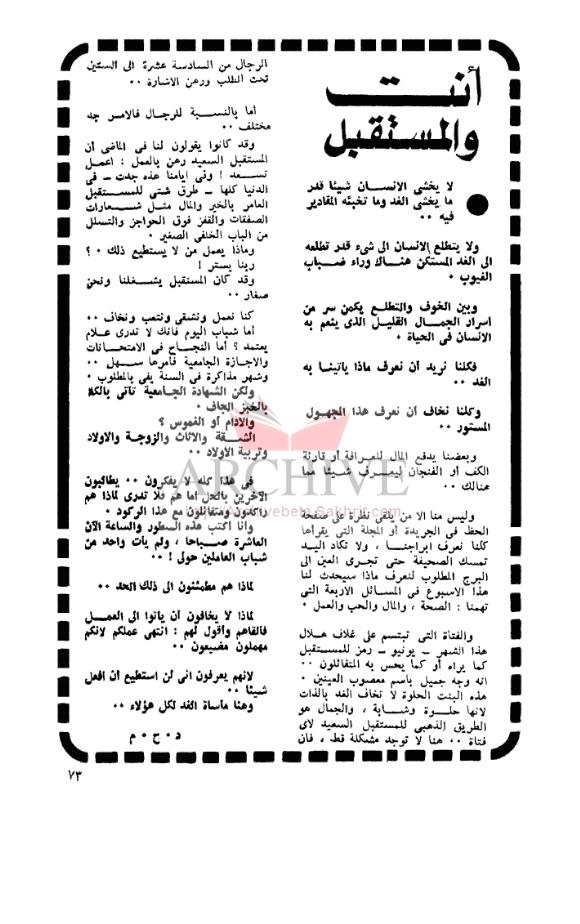 أنت
والمستقبل
لا يخشى الانسان شيئا قدر
ما يخشى الغد وما تخبئه المقادير
فيه ٠٠
ولا يتطلع الانسان الى شىء قدر تطلعه
الى الغد المستكن هناك وراء ضباب
الغيوب ٠
وبين الخوف والتطلع يكمن سر من
اسرار الجمال القليل الذى ينعم به
الانسان فى الحياة ٠
فكلنا نريد أن نعرف ماذا يأتينا به
الغد ٠٠
وكلنا نخاف أن نعرف هذا المجهول
المستور ٠٠
وبعضنا يدفع المال للعرافة أو قارئة
الكف أو الفنجان ليعرف شيئا مما
هنالك ٠٠
وليس منا الا من يلقى نظرة على صفحة
الحظ فى الجريدة أو المجلة التى يقرأها
كلنا نعرف ابراجنا ، ولا تكاد اليد
تمسك الصحيفة حتى تجرى العين الى
البرج المطلوب لنعرف ماذا سيحدث لنا
هذا الاسبوع فى المسائل الاربعة التى
تهمنا : الصحة ، والمال والحب والعمل ٠
والفتاة التى تبتسم على غلاف هلال
هذا الشهر ــ يونيو ــ رمز للمستقبل
كما يراه أو كما يحس به المتفائلون ٠٠
انه وجه جميل باسم معصوب العينين ٠
هذه البنت الحلوة لا تخاف الغد بالذات
لانها حلوة وشابة ، والجمال هو
الطريق الذهبى للمستقبل السعيد لاى
فتاة ٠٠ هنا لا توجد مشكلة قط ، فان
الرجال من السادسة عشرة الى الستين
تحت الطلب ورهن الاشارة ٠٠
أما بالنسبة للرجال فالامر جد
مختلف ٠٠
وقد كانوا يقولون لنا فى الماضى أن
المستقبل السعيد رهن بالعمل : اعمل
تسعد ! وفى ايامنا هذه جدت ــ فى
الدنيا كلها ــ طرق شتى للمستقبل
العامر بالخير والمال مثل شعارات
الصفقات والقفز فوق الحواجز والتسلل
من الباب الخلفى الصغير ٠
وماذا يعمل من لا يستطيع ذلك ٠ ؟
ربنا يستر !
وقد كان المستقبل يشغلنا ونحن
صغار ٠٠
كنا نعمل ونشقى ونتعب ونخاف ٠٠
أما شباب اليوم فانك لا تدرى علام
يعتمد ؟ أما النجاح فى الامتحانات
والاجازة الجامعية فأمرها سهل ٠٠
وشهر مذاكرة فى السنة يفى بالمطلوب ٠
ولكن الشهادة الجامعية تأتى بالكاد
بالخبز الجاف ٠
والادام أو الغموس ؟
الشقة والاثاث والزوجة والاولاد
وتربية الاولاد ٠٠
فى هذا كله لا يفكرون ٠٠ يطالبون
الآخرين بالحل أما هم فلا تدرى لماذا هم
راكدون ومتفائلون مع هذا الركود ٠
وأنا أكتب هذه السطور والساعة الآن
العاشرة صباحا ، ولم يات واحد من
شباب العاملين حولى ! ٠٠
لماذا هم مطمئنون الى ذلك الحد ٠٠
لماذا لا يخافون أن يأتوا الى العمل
فألقاهم وأقول لهم : انتهى عملكم لانكم
مهملون مضيعون ٠٠
لانهم يعرفون انى لن استطيع أن افعل
شيئا ٠٠
وهنا مأساة الغد لكل هؤلاء ٠٠
د ٠ ح ٠ م
٧٣
ARCHIVE